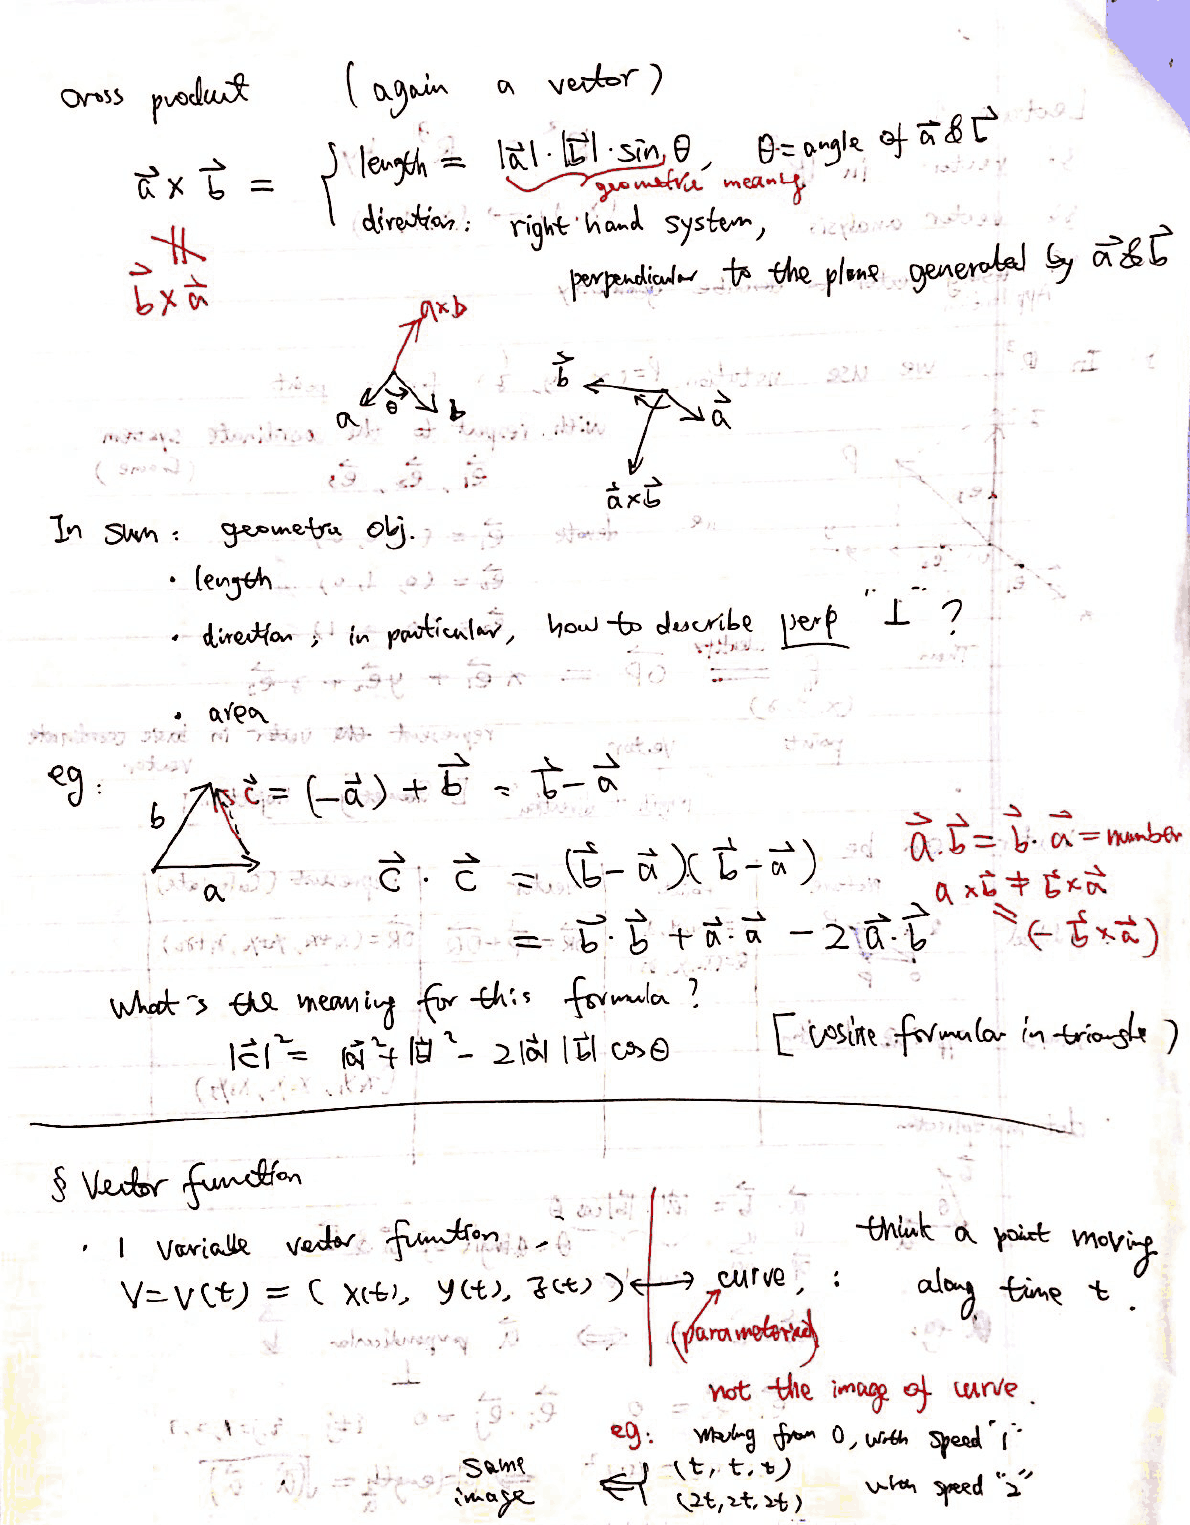 cross product (again a vector)
a⃗ × b⃗ = { length = |a⃗|·|b⃗|·sin θ, θ = angle of a⃗ & b⃗
geometric meaning
direction: right hand system,
∦
b⃗ × a⃗
perpendicular to the plane generated by a⃗ & b⃗
a×b
a θ b
b⃗ a⃗
a⃗×b⃗
In sum: geometric obj.
· length
· direction; in particular, how to describe perp "⊥" ?
· area
eg: b a c⃗ = (-a⃗) + b⃗ = b⃗ - a⃗
c⃗ · c⃗ = (b⃗ - a⃗)(b⃗ - a⃗)
= b⃗·b⃗ + a⃗·a⃗ - 2 a⃗·b⃗
a⃗·b⃗ = b⃗·a⃗ = number
a×b⃗ ≠ b⃗×a⃗
= (- b⃗×a⃗)
What's the meaning for this formula?
|c⃗|² = |a⃗|² + |b⃗|² - 2|a⃗| |b⃗| cos θ [cosine formular in triangle)
§ Vector function
· 1 variable vector function
V = V(t) = (x(t), y(t), z(t)) ⟷ curve, : think a point moving
along time t.
(parametorized)
not the image of curve.
eg: moving from 0, with speed "1"
same (t, t, t)
image ⇐ (2t, 2t, 2t) when speed "2"